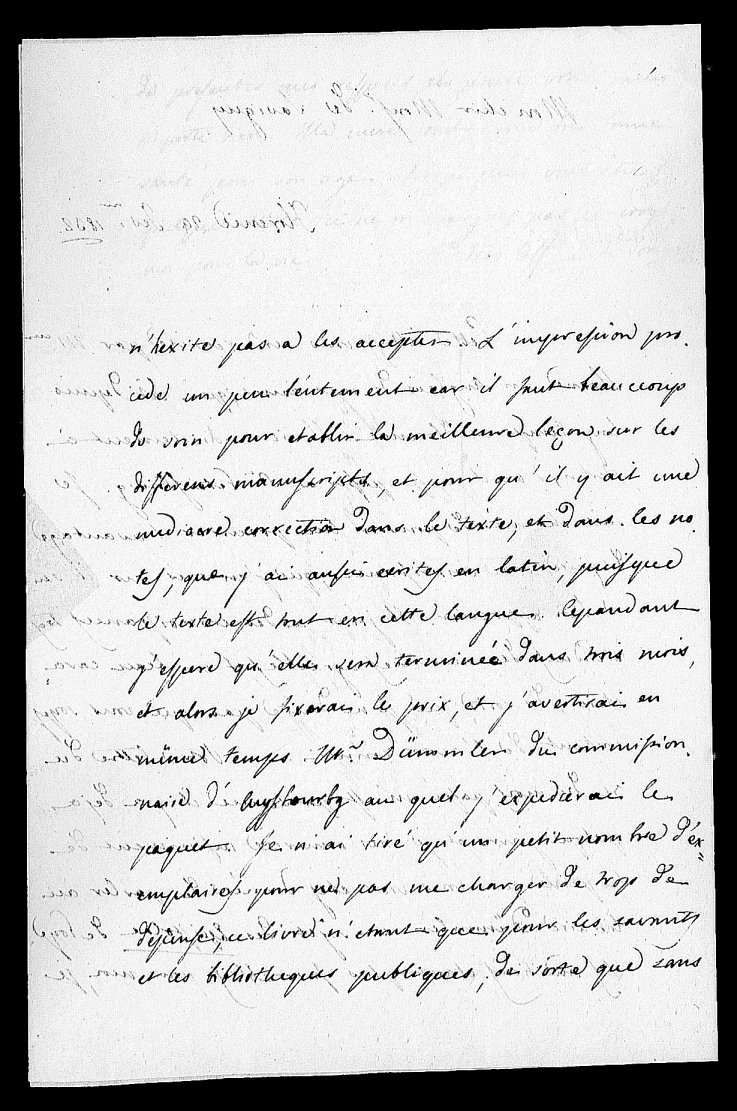 n'hexite pas a les accepter L'impression pro.
cede un peu lentement car il faut beaucoup
de soin pour etablir la meilleure leçon sur les
differens manuscripts, et pour qu'il y ait une
mediocre correction dans le texte, et dans les no
tes, que j'ai aussi ecrites en latin, puisque
le texte est tout en cette langue. Cependant
j'espere qu'elle sera terminée dans trois mois,
et alors je fixerai le prix, et j'avertirai en
même temps Mr. Dümmler du commission.
naire d'Augsbourg au quel j'expedierai le
paquet. Je n'ai tiré qu'un petit nombre d'ex=
emplaires pour ne pas me charger de trop de
depense, ce livre n'etant que pour les savants
et les bibliotheques publiques, de sorte que sans